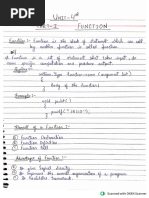 Unit-4th
PART-I FUNCTION
Function :- Function is the block of statement which can call
by another function is called function.
A function is a set of statements that takes input, do
some specific computation and produces output.
Syntax
return type function name (argument list)
{
body of the function
}
Example:-
void print()
{
printf("HELLO");
}
Element of a function :-
Function Declaration
Function Definition
Function Calling
Advantage of function :-
To improve the overall organization of a program
Scanned with CamScanner